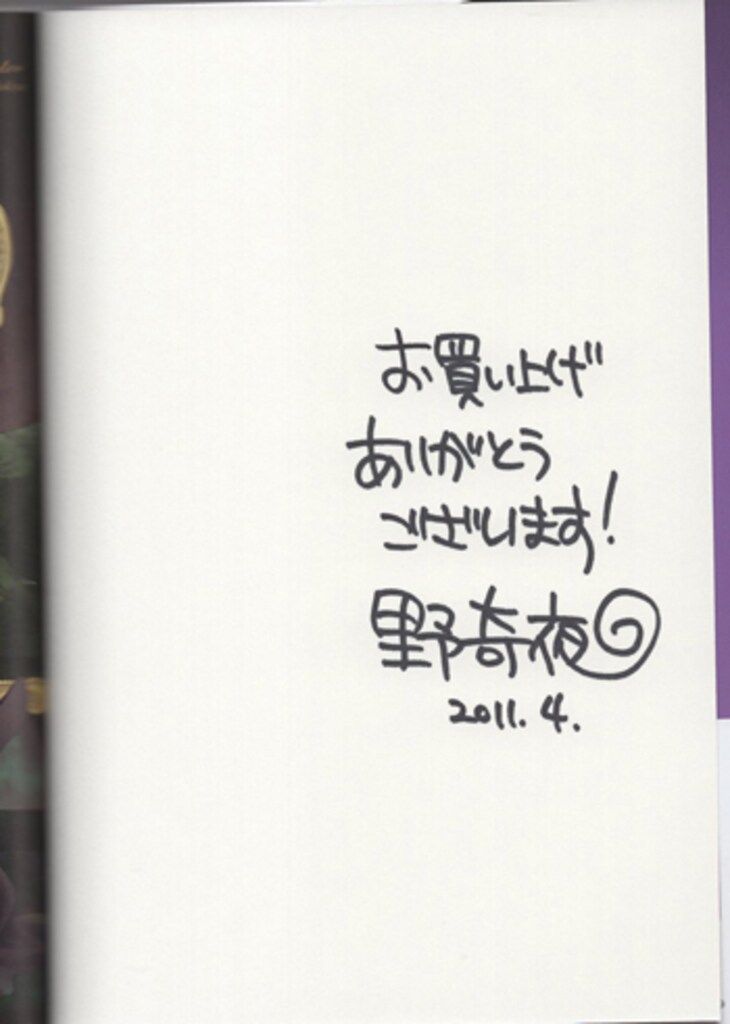 お買い上げ
ありがとう
ございます!
野奇夜
2011.4.